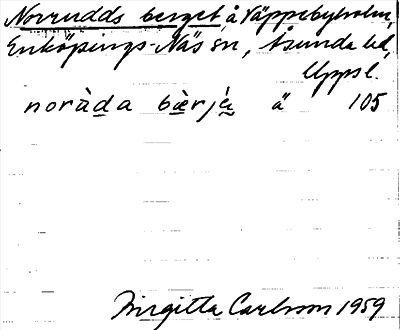 Norrudds berget, å Väppebyholm,
Enköpings-Näs sn, Åsunda hd,
Uppsl.
noràda bèrjé ä 105
Birgitta Carlsson 1959